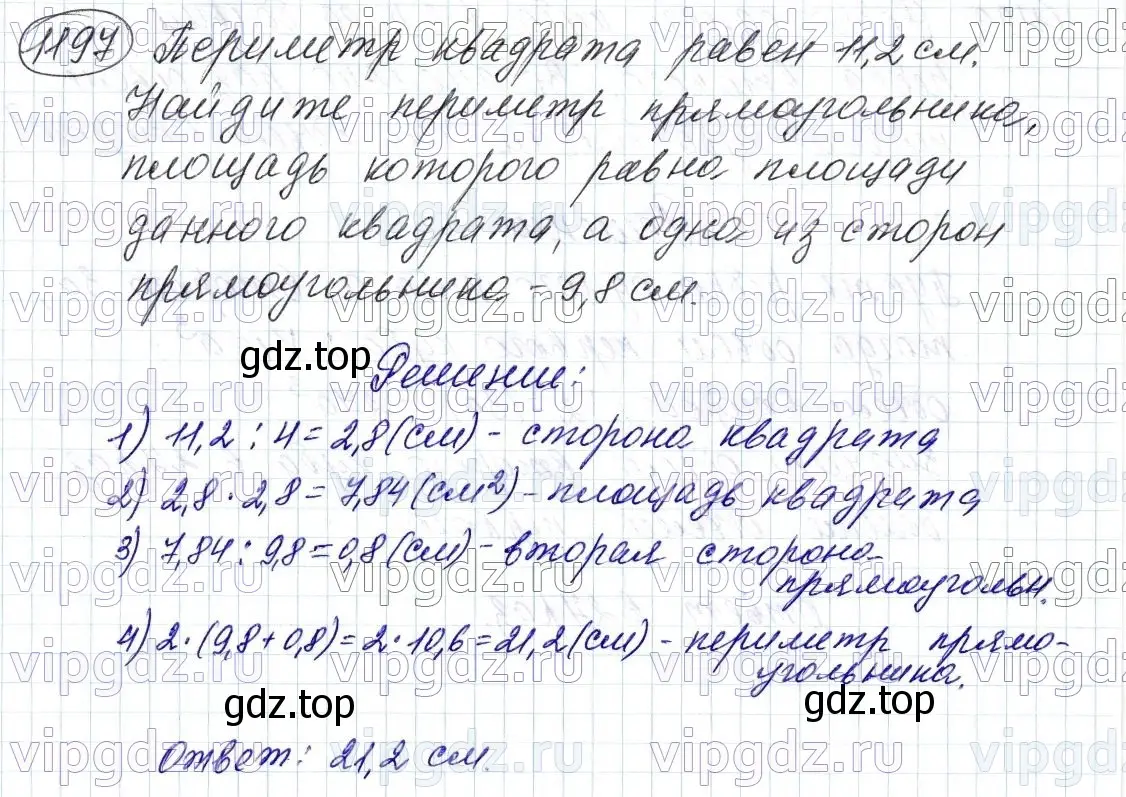 1197 Периметр квадрата равен 11,2 см.
Найдите периметр прямоугольника,
площадь которого равна площади
данного квадрата, а одна из сторон
прямоугольника - 9,8 см.
gdz.top
Решение:
1) 11,2 : 4 = 2,8 (см) - сторона квадрата
2) 2,8 · 2,8 = 7,84 (см²) - площадь квадрата
3) 7,84 : 9,8 = 0,8 (см) - вторая сторона
прямоугольн.
4) 2 · (9,8 + 0,8) = 2 · 10,6 = 21,2 (см) - периметр прямо-
угольника.
gdz.top
gdz.top
Ответ: 21,2 см.
vipgdz.ru